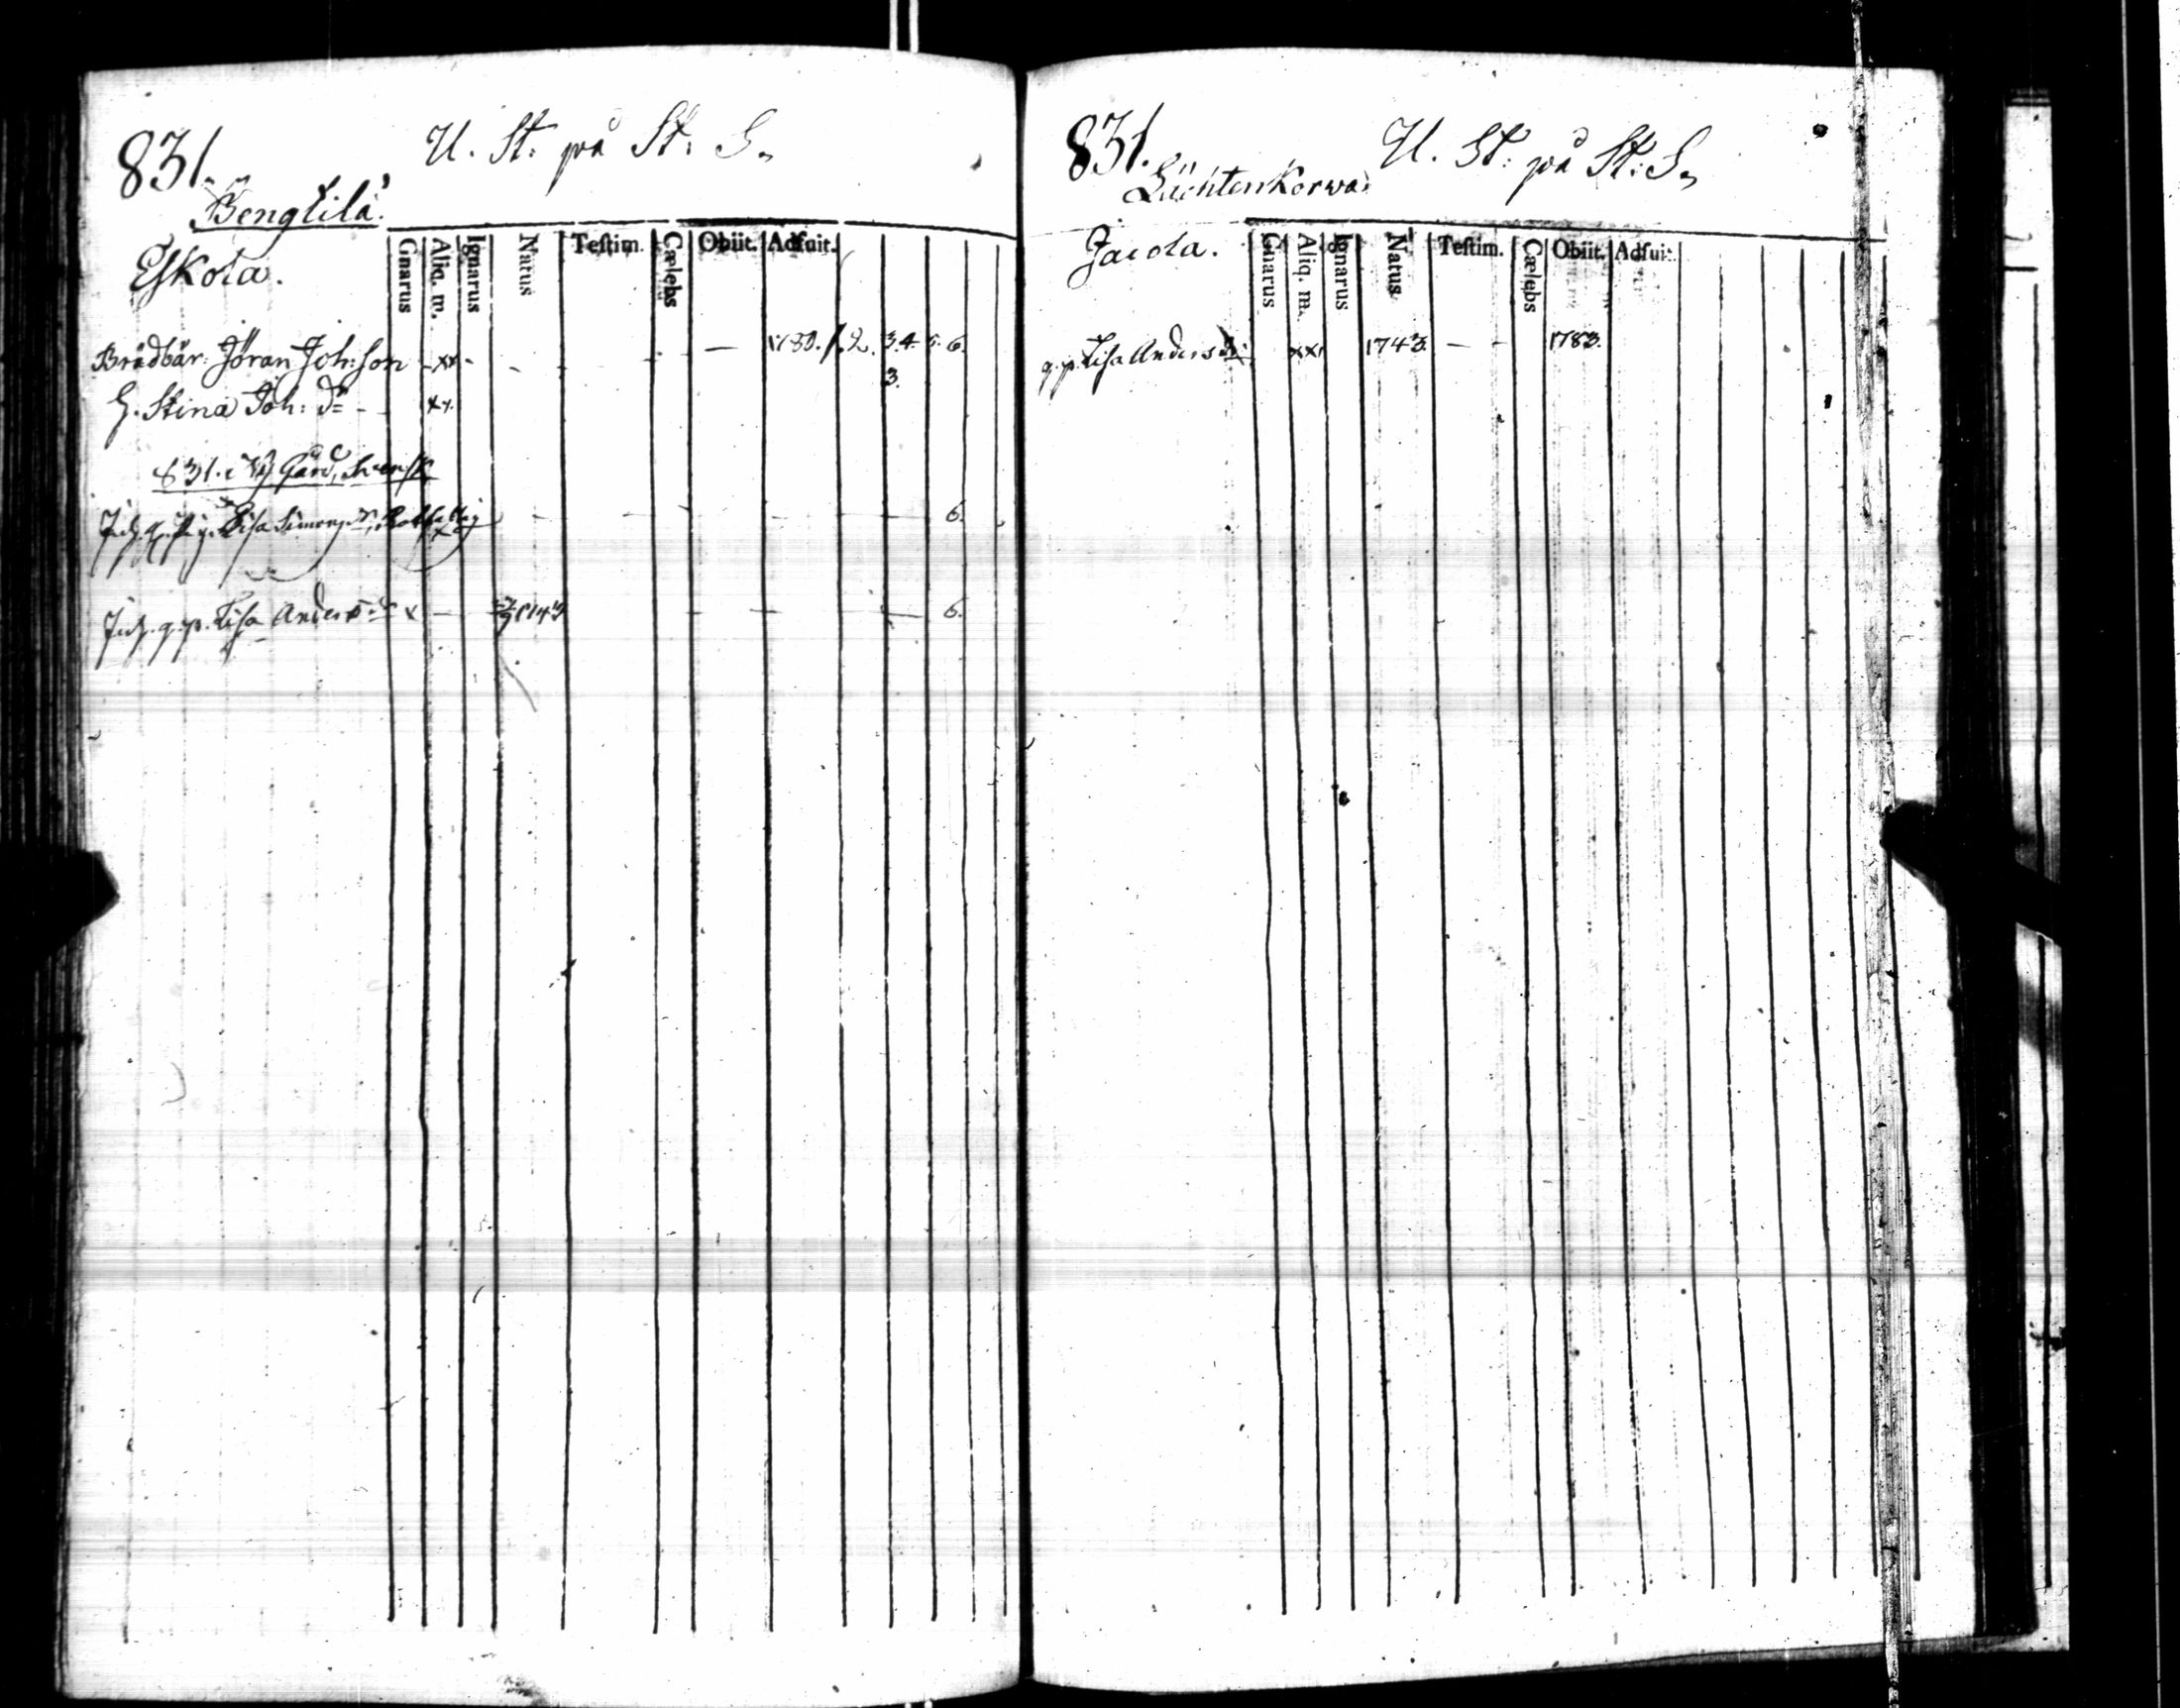 831. U. St: på St: S.
Bengtilä.
Eskola.
Gnarus Aliq. m. Ignarus Natus Teſtim. Cælebs Obiit. Adfuit.
Brådbär: Jöran Joh:son - xx - - - - - - 1780. 1. 2. 3. 4. 5. 6.
3.
H. Stina Joh: dr - xx.
831. Ny Gård, Svensk
Inh. Lisa Simons dr, - - - - - 6.
Inh. q. p. Lisa Anders dr x - 1743 - - - 6.
831. U. St: på St: S.
Lächtenkorwa.
Jacola.
Gnarus Aliq. m. Ignarus Natus Teſtim. Cælebs Obiit. Adfuit.
q. p. Lisa Anders dr xx 1743. - - 1783.